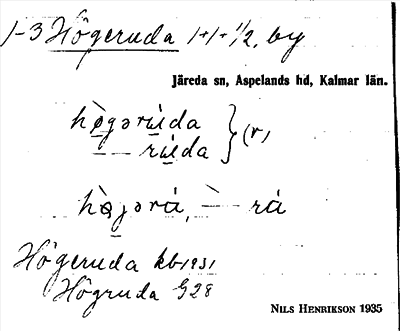 1-3 Högeruda 1+1+1/2, by
Järeda sn, Aspelands hd, Kalmar län.
hø̀gərúda
— rúda } (r)
hø̀jərá, — rá
Högeruda kb 1931
Högruda G28
NILS HENRIKSON 1935